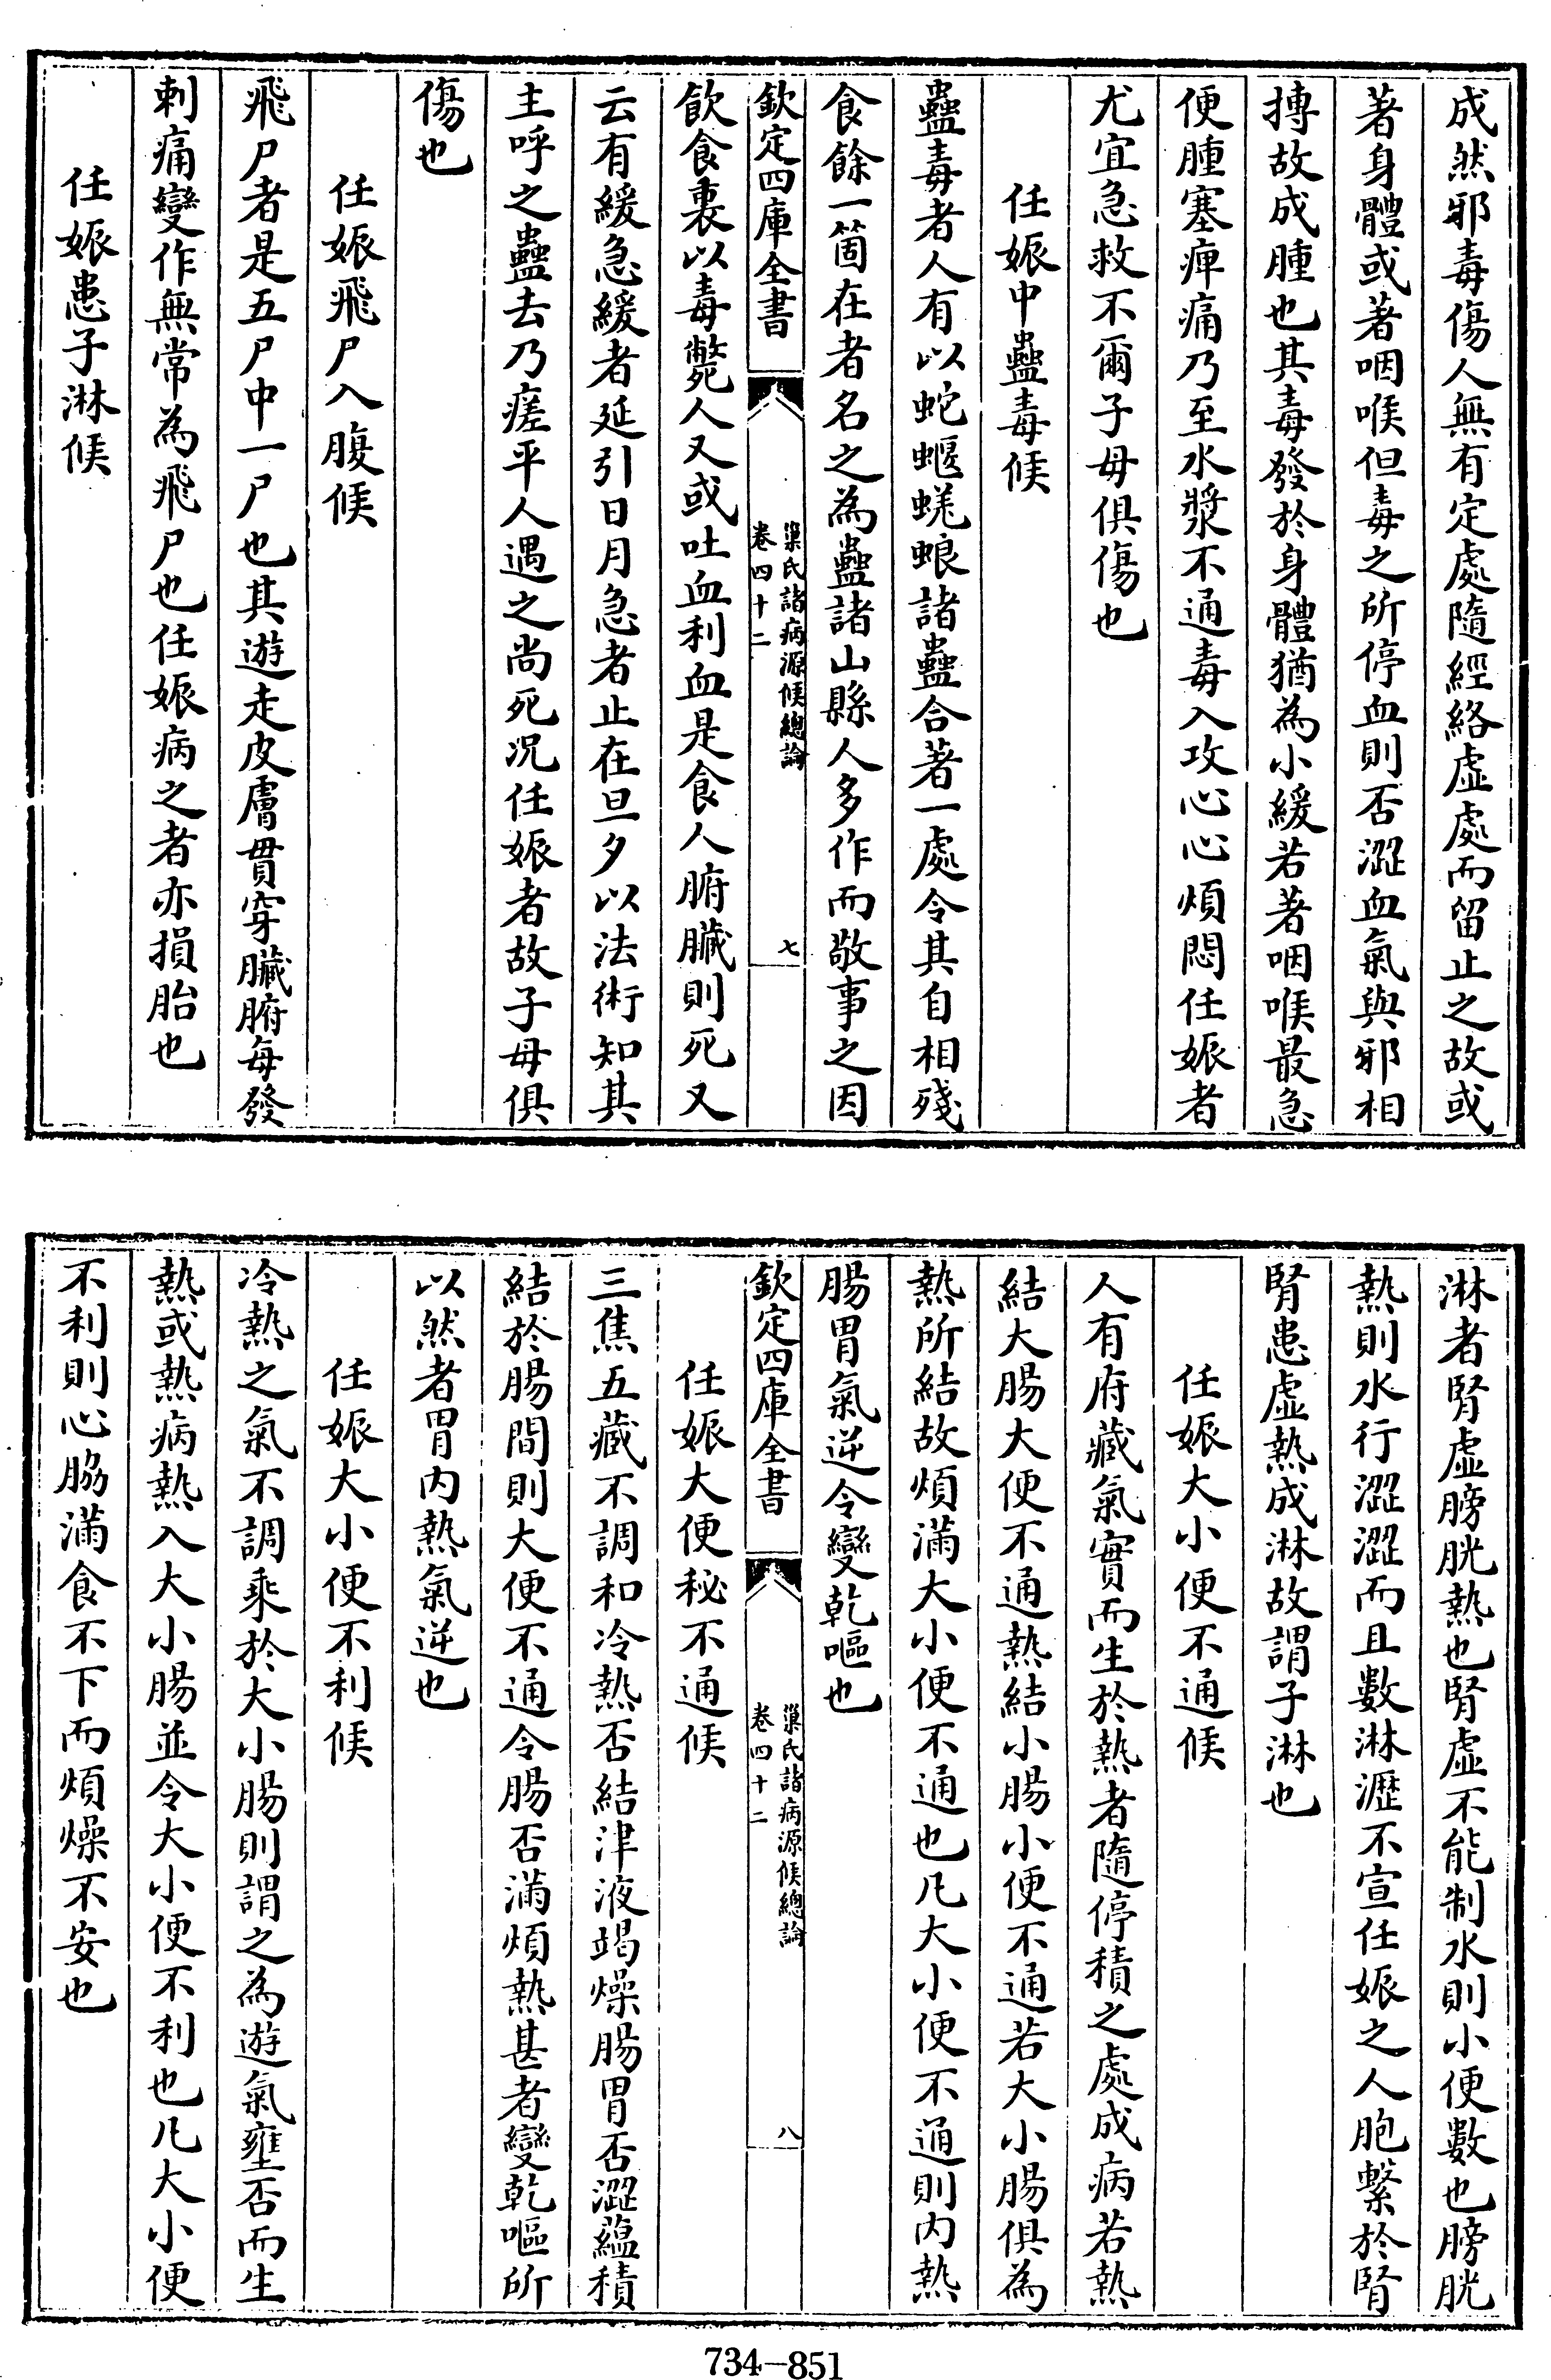 成然邪毒傷人無有定處隨經絡虚處而留止之故或
著身體或著咽喉但毒之所停血則否澀血氣與邪相
搏故成腫也其毒發於身體猶為小緩若著咽喉最急
便腫塞痺痛乃至水漿不通毒入攻心心煩悶任娠者
尤宜急救不爾子母俱傷也
任娠中蠱毒候
蠱毒者人有以蛇蝘蜣蜋諸蠱合著一處令其自相殘
食餘一箇在者名之為蠱諸山縣人多作而敬事之因
欽定四庫全書
巢氏諸病源候總論
卷四十二
七
飲食裏以毒斃人又或吐血利血是食人腑臟則死又
云有緩急緩者延引日月急者止在旦夕以法術知其
主呼之蠱去乃瘥平人遇之尚死况任娠者故子母俱
傷也
任娠飛尸入腹候
飛尸者是五尸中一尸也其遊走皮膚貫穿臟腑每發
刺痛變作無常為飛尸也任娠病之者亦損胎也
任娠患子淋候
淋者腎虚膀胱熱也腎虚不能制水則小便數也膀胱
熱則水行澀澀而且數淋瀝不宣任娠之人胞繫於腎
腎患虚熱成淋故謂子淋也
任娠大小便不通候
人有府藏氣實而生於熱者隨停積之處成病若熱
結大腸大便不通熱結小腸小便不通若大小腸俱為
熱所結故煩滿大小便不通也凡大小便不通則内熱
腸胃氣逆令變乾嘔也
欽定四庫全書
巢氏諸病源候總論
卷四十二
八
任娠大便秘不通候
三焦五藏不調和冷熱否結津液竭燥腸胃否澀蘊積
結於腸間則大便不通令腸否滿煩熱甚者變乾嘔所
以然者胃内熱氣逆也
任娠大小便不利候
冷熱之氣不調乘於大小腸則謂之為遊氣壅否而生
熱或熱病熱入大小腸並令大小便不利也凡大小便
不利則心脇滿食不下而煩燥不安也
734-851